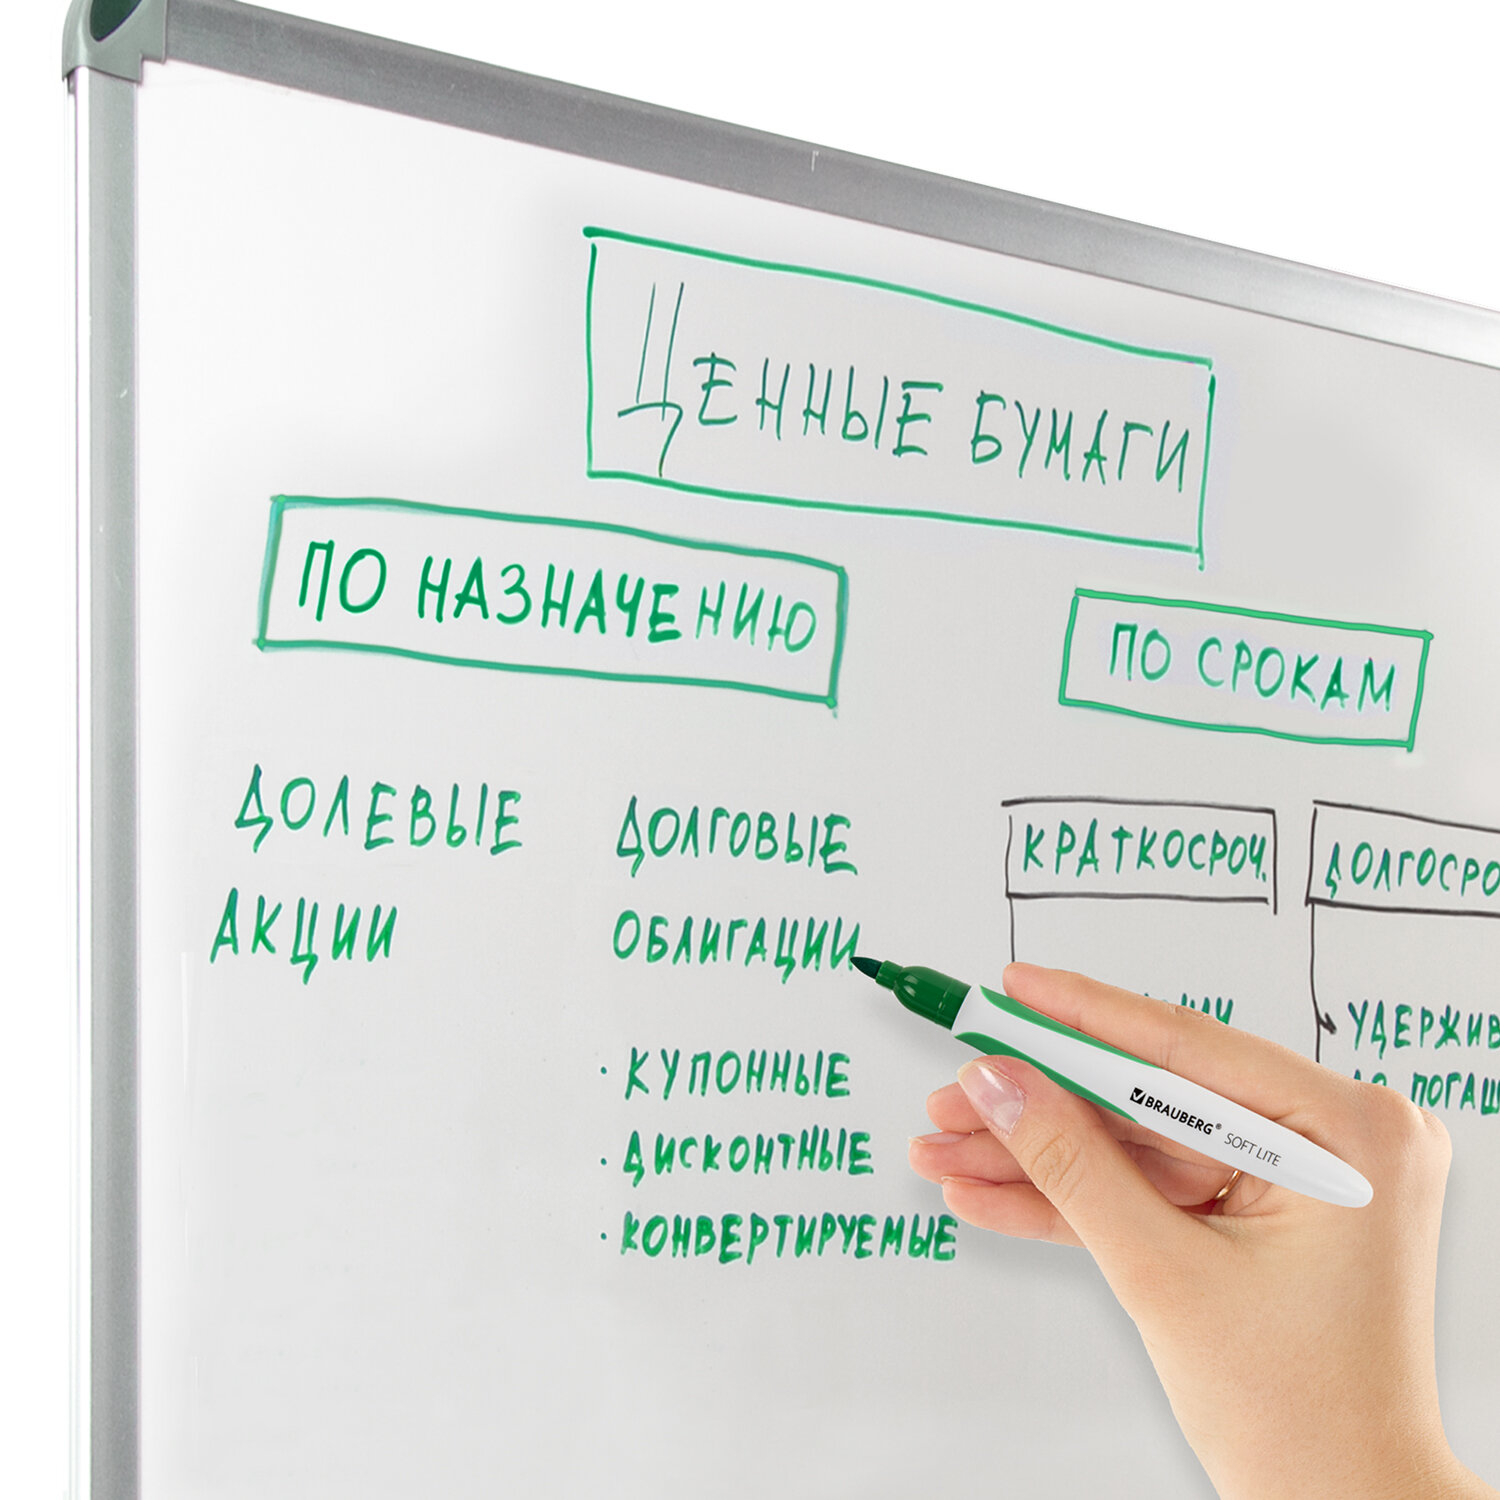 ЦЕННЫЕ БУМАГИ
ПО НАЗНАЧЕНИЮ
ПО СРОКАМ
ДОЛЕВЫЕ
АКЦИИ
ДОЛГОВЫЕ
ОБЛИГАЦИИ
· КУПОННЫЕ
· ДИСКОНТНЫЕ
· КОНВЕРТИРУЕМЫЕ
КРАТКОСРОЧ.
ДОЛГОСРО
УДЕРЖИВ
ПОГАШ
BRAUBERG® SOFT LITE